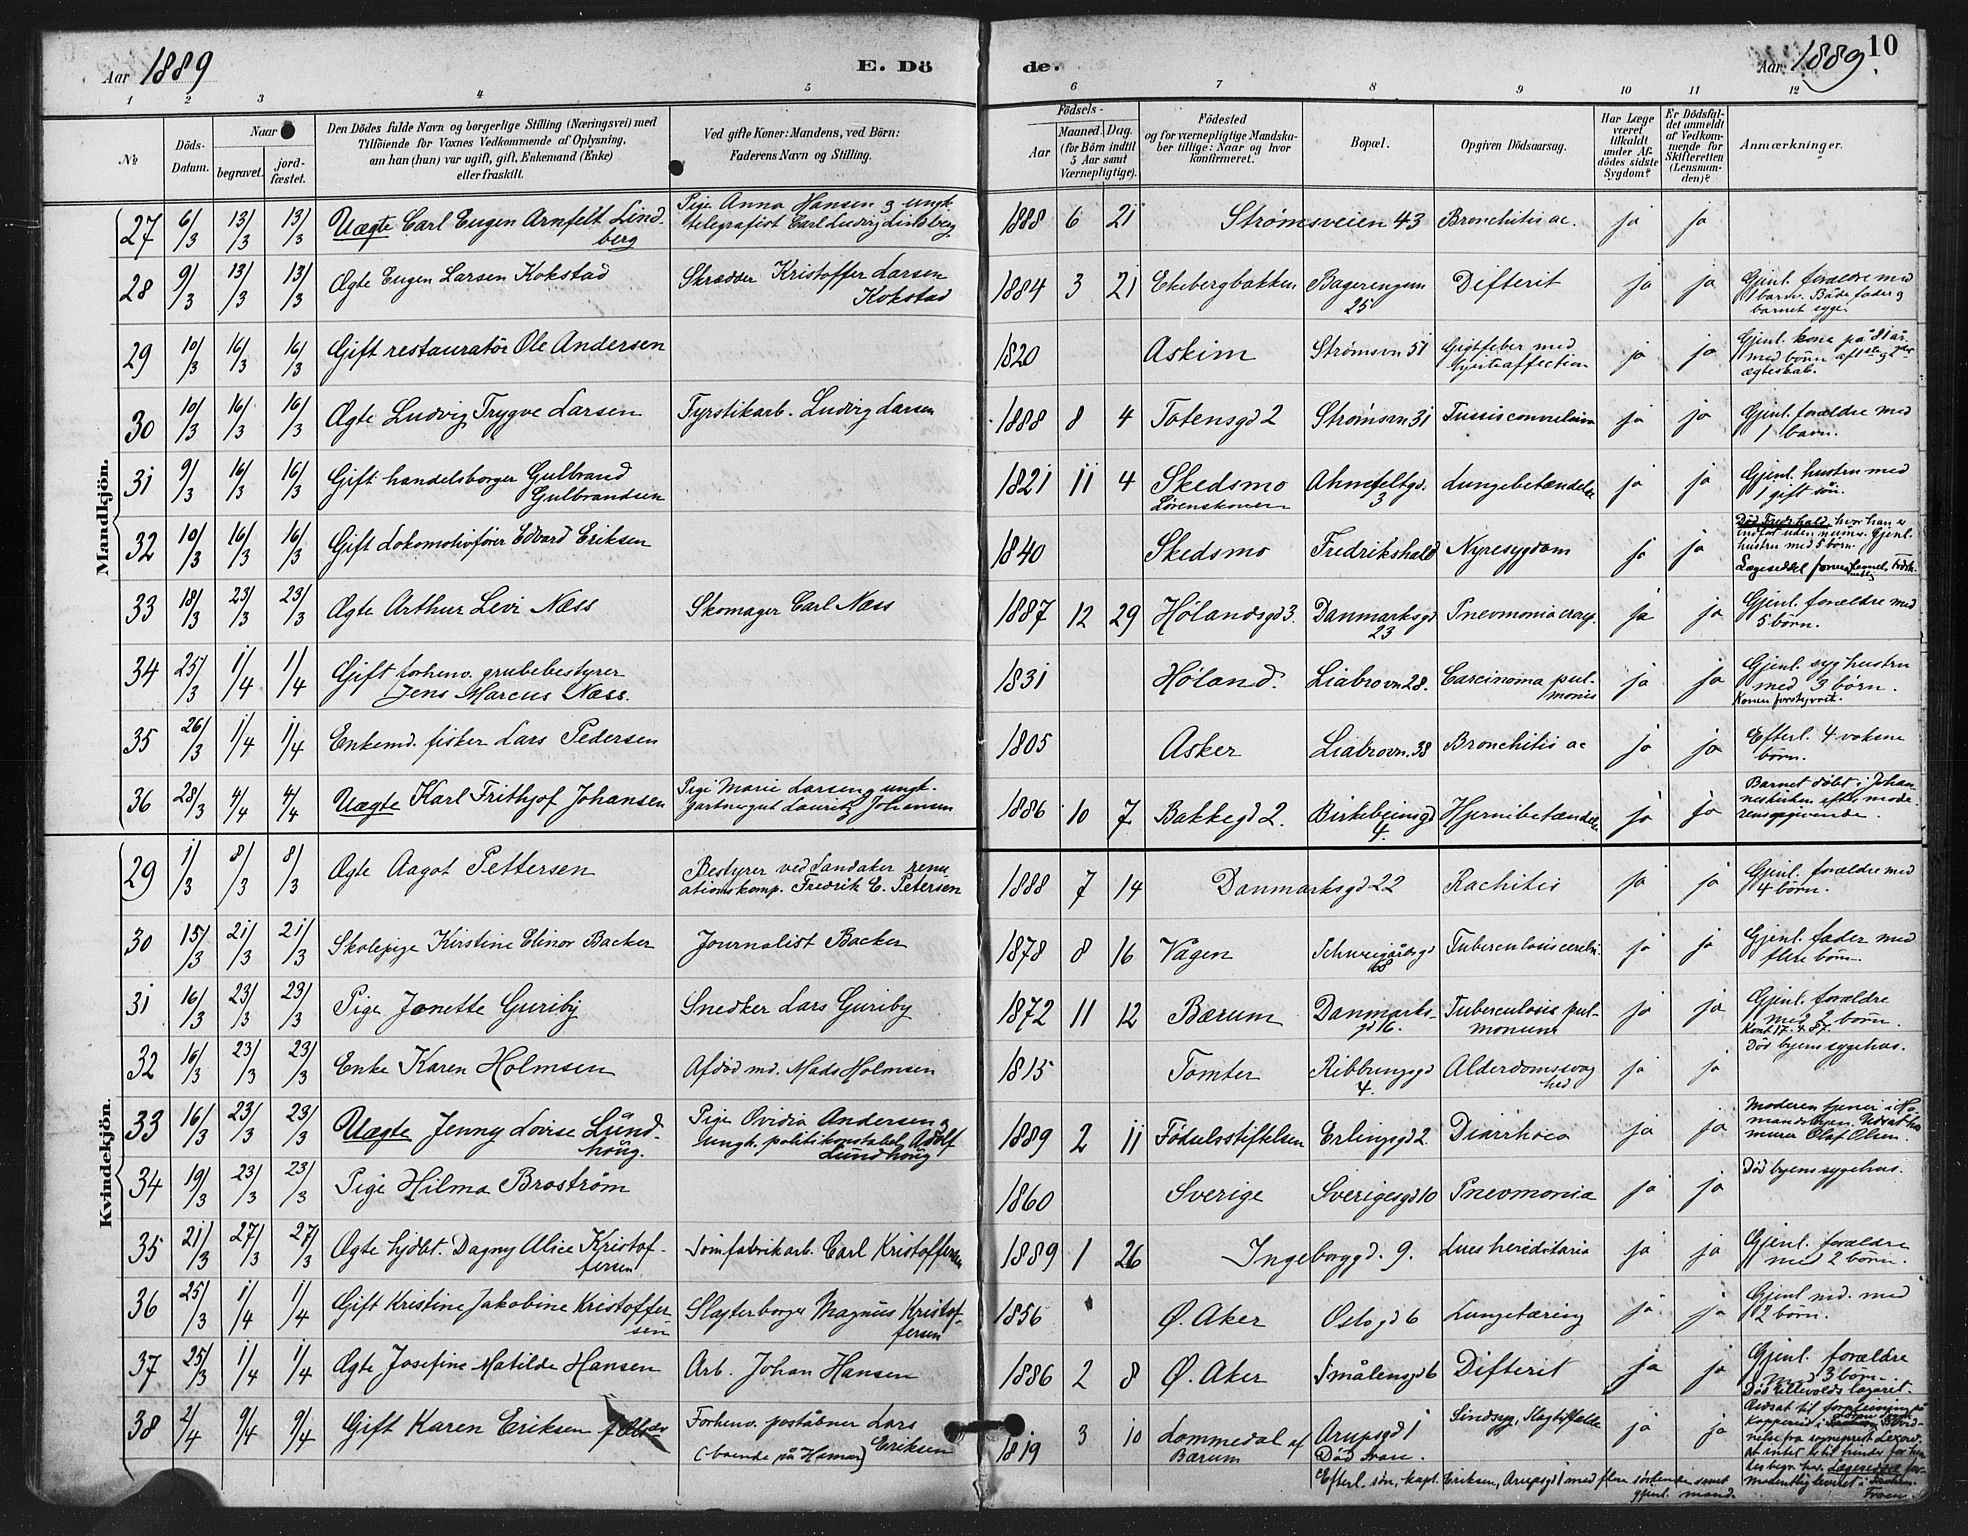 Aar 1889 E. Dö de. Aar 1889 10
1 2 3 4 5 6 7 8 9 10 11 12
№ Döds-Datum. Naar begravet. jordfæstet. Den Dödes fulde Navn og borgerlige Stilling (Næringsvei) med Tilföiende for Voxnes Vedkommende af Oplysning, om han (hun) var ugift, gift, Enkemand (Enke) eller fraskilt. Ved gifte Koner: Mandens, ved Börn: Faderens Navn og Stilling. Födsels- Aar Maaned. Dag. (for Börn indtil 5 Aar samt Værnepligtige). Födested og for værnepligtige Mandskaber tillige: Naar og hvor konfirmeret. Bopæl. Opgiven Dödsaarsag. Har Læge været tilkaldt under Afdödes sidste Sygdom? Er Dödsfaldet anmeldt af Vedkommende for Skifteretten (Lensmanden)? Anmærkninger.
Mandkjön.
27 6/3 13/3 13/3 Uægte Carl Eugen Armfelt Lindberg Pige Anna Hansen og ungk. telegrafist Carl Ludvig Lindberg 1888 6 21 Strømsveien 43 Bronchitis ac. ja ja
28 9/3 13/3 13/3 Ægte Eugen Larsen Kokstad Skrædder Kristoffer Larsen Kokstad 1884 3 21 Ekebergbakken 25 Difterit ja ja Gjenl. forældre med 1 barn. Både fader og barnet syge.
29 10/3 16/3 16/3 Gift restauratør Ole Andersen 1820 Askim Strømsvn 51 Gigtfeber med ja ja Gjenl. kone på 81 år, med børn af 1ste og 2det ægteskab.
30 10/3 16/3 16/3 Ægte Ludvig Trygve Larsen Fyrstikarb. Ludvig Larsen 1888 8 4 Totensgd 2 Strømsvn 31 Tussis convulsiva ja ja Gjenl. forældre med 1 barn.
31 9/3 16/3 16/3 Gift handelsborger Gulbrand Gulbrandsen 1821 11 4 Skedsmo Lørenskoven Ahnefeltgd. 3 Lungebetændelse ja ja Gjenl. hustru med 1 gift søn.
32 10/3 16/3 16/3 Gift Lokomotivfører Edvard Eriksen 1840 Skedsmo Fredrikshald Nyresygdom ja ja Død Fredr.hald, hvor han er indført uden numer. Gjenl. hustru med 5 børn. Lægeseddel
33 18/3 23/3 23/3 Ægte Arthur Levi Næss Skomager Carl Næss 1887 12 29 Hølandsgd 3. Danmarksgd 23 Pnevmonia croup. ja ja Gjenl. forældre med 5 børn.
34 25/3 1/4 1/4 Gift forhenv. grubebestyrer Jens Marcus Næss. 1831 Høland. Liabrovn 28. Carcinoma pulmonis ja ja Gjenl. syg hustru med 3 børn.
35 26/3 1/4 1/4 Enkemd. fisker Lars Pedersen 1805 Asker Liabrovn. 38 Bronchitis ac ja ja Efterl. 4 voksne børn.
36 28/3 4/4 4/4 Uægte Karl Frithjof Johansen Pige Marie Larsen og ungk. gartnergut Lauritz Johansen 1886 10 7 Bakkegd 2. Birkebeinsgd 4. Hjernebetændelse ja ja Barnet døbt i Johanneskirken efter moderens opgivende.
Kvindekjön.
29 1/3 8/3 8/3 Ægte Aagot Pettersen Bestyrer ved Sandaker renovationskomp. Fredrik E. Petersen 1888 7 14 Danmarksgd 22 Rachitis ja ja Gjenl. forældre med 4 børn.
30 15/3 21/3 21/3 Skolepige Kirstine Elinor Backer Journalist Backer 1878 8 16 Vågen Schweigårdsgd Tuberculosis cerebri ja ja Gjenl. fader med flere børn.
31 16/3 23/3 23/3 Pige Jonette Guriby Snedker Lars Guriby 1872 11 12 Bærum Danmarksgd 16. Tuberculosis pulmonum ja ja Gjenl. forældre med 2 børn. Konf. 17.4.87.
32 16/3 23/3 23/3 Enke Karen Holmsen Afdød md. Mads Holmsen 1815 Tomter Ribbungsgd 4. Alderdomssvaghed ja ja Død byens sygehus.
33 16/3 23/3 23/3 Uægte Jenny Lovise Lundhoug. Pige Ovidia Andersen og ungk. politikonstabel Adolf Lundhoug 1889 2 11 Fødselsstiftelsen Erlingsgd 2 Diarrhoea ja ja Moderen tjener i Olaf Olsen.
34 19/3 23/3 23/3 Pige Hilma Broström 1860 Sverige Sverigesgd 10 Pnevmonia ja ja Død byens sygehus.
35 21/3 27/3 27/3 Ægte hjdbt. Dagny Alice Kristoffersen Sømfabrikarb. Carl Kristoffersen 1889 1 26 Ingeborggd. 9. Lues hereditaria ja ja Gjenl. forældre med 2 børn.
36 25/3 1/4 1/4 Gift Kristine Jakobine Kristoffersen Slagterborger Magnus Kristoffersen 1856 Ø. Aker Oslogd 6 Lungetæring ja ja Gjenl. md. med 2 børn.
37 25/3 1/4 1/4 Ægte Josefine Matilde Hansen Arb. Johan Hansen 1886 2 8 Ø. Aker Smålensgd 6 Difterit ja ja Gjenl. forældre med 3 børn. Død Ullevolds lazaret.
38 2/4 9/4 9/4 Gift Karen Eriksen Forhenv. poståbner Lars Eriksen (boende på Hamar) 1819 3 10 Lommedal af Bærum Arupsgd 1 Sindssyg, Slagtilfælde ja ja
Efterl. søn, kapt. Eriksen, Arupsgd 1 med flere søskende samt gjenl. mand.